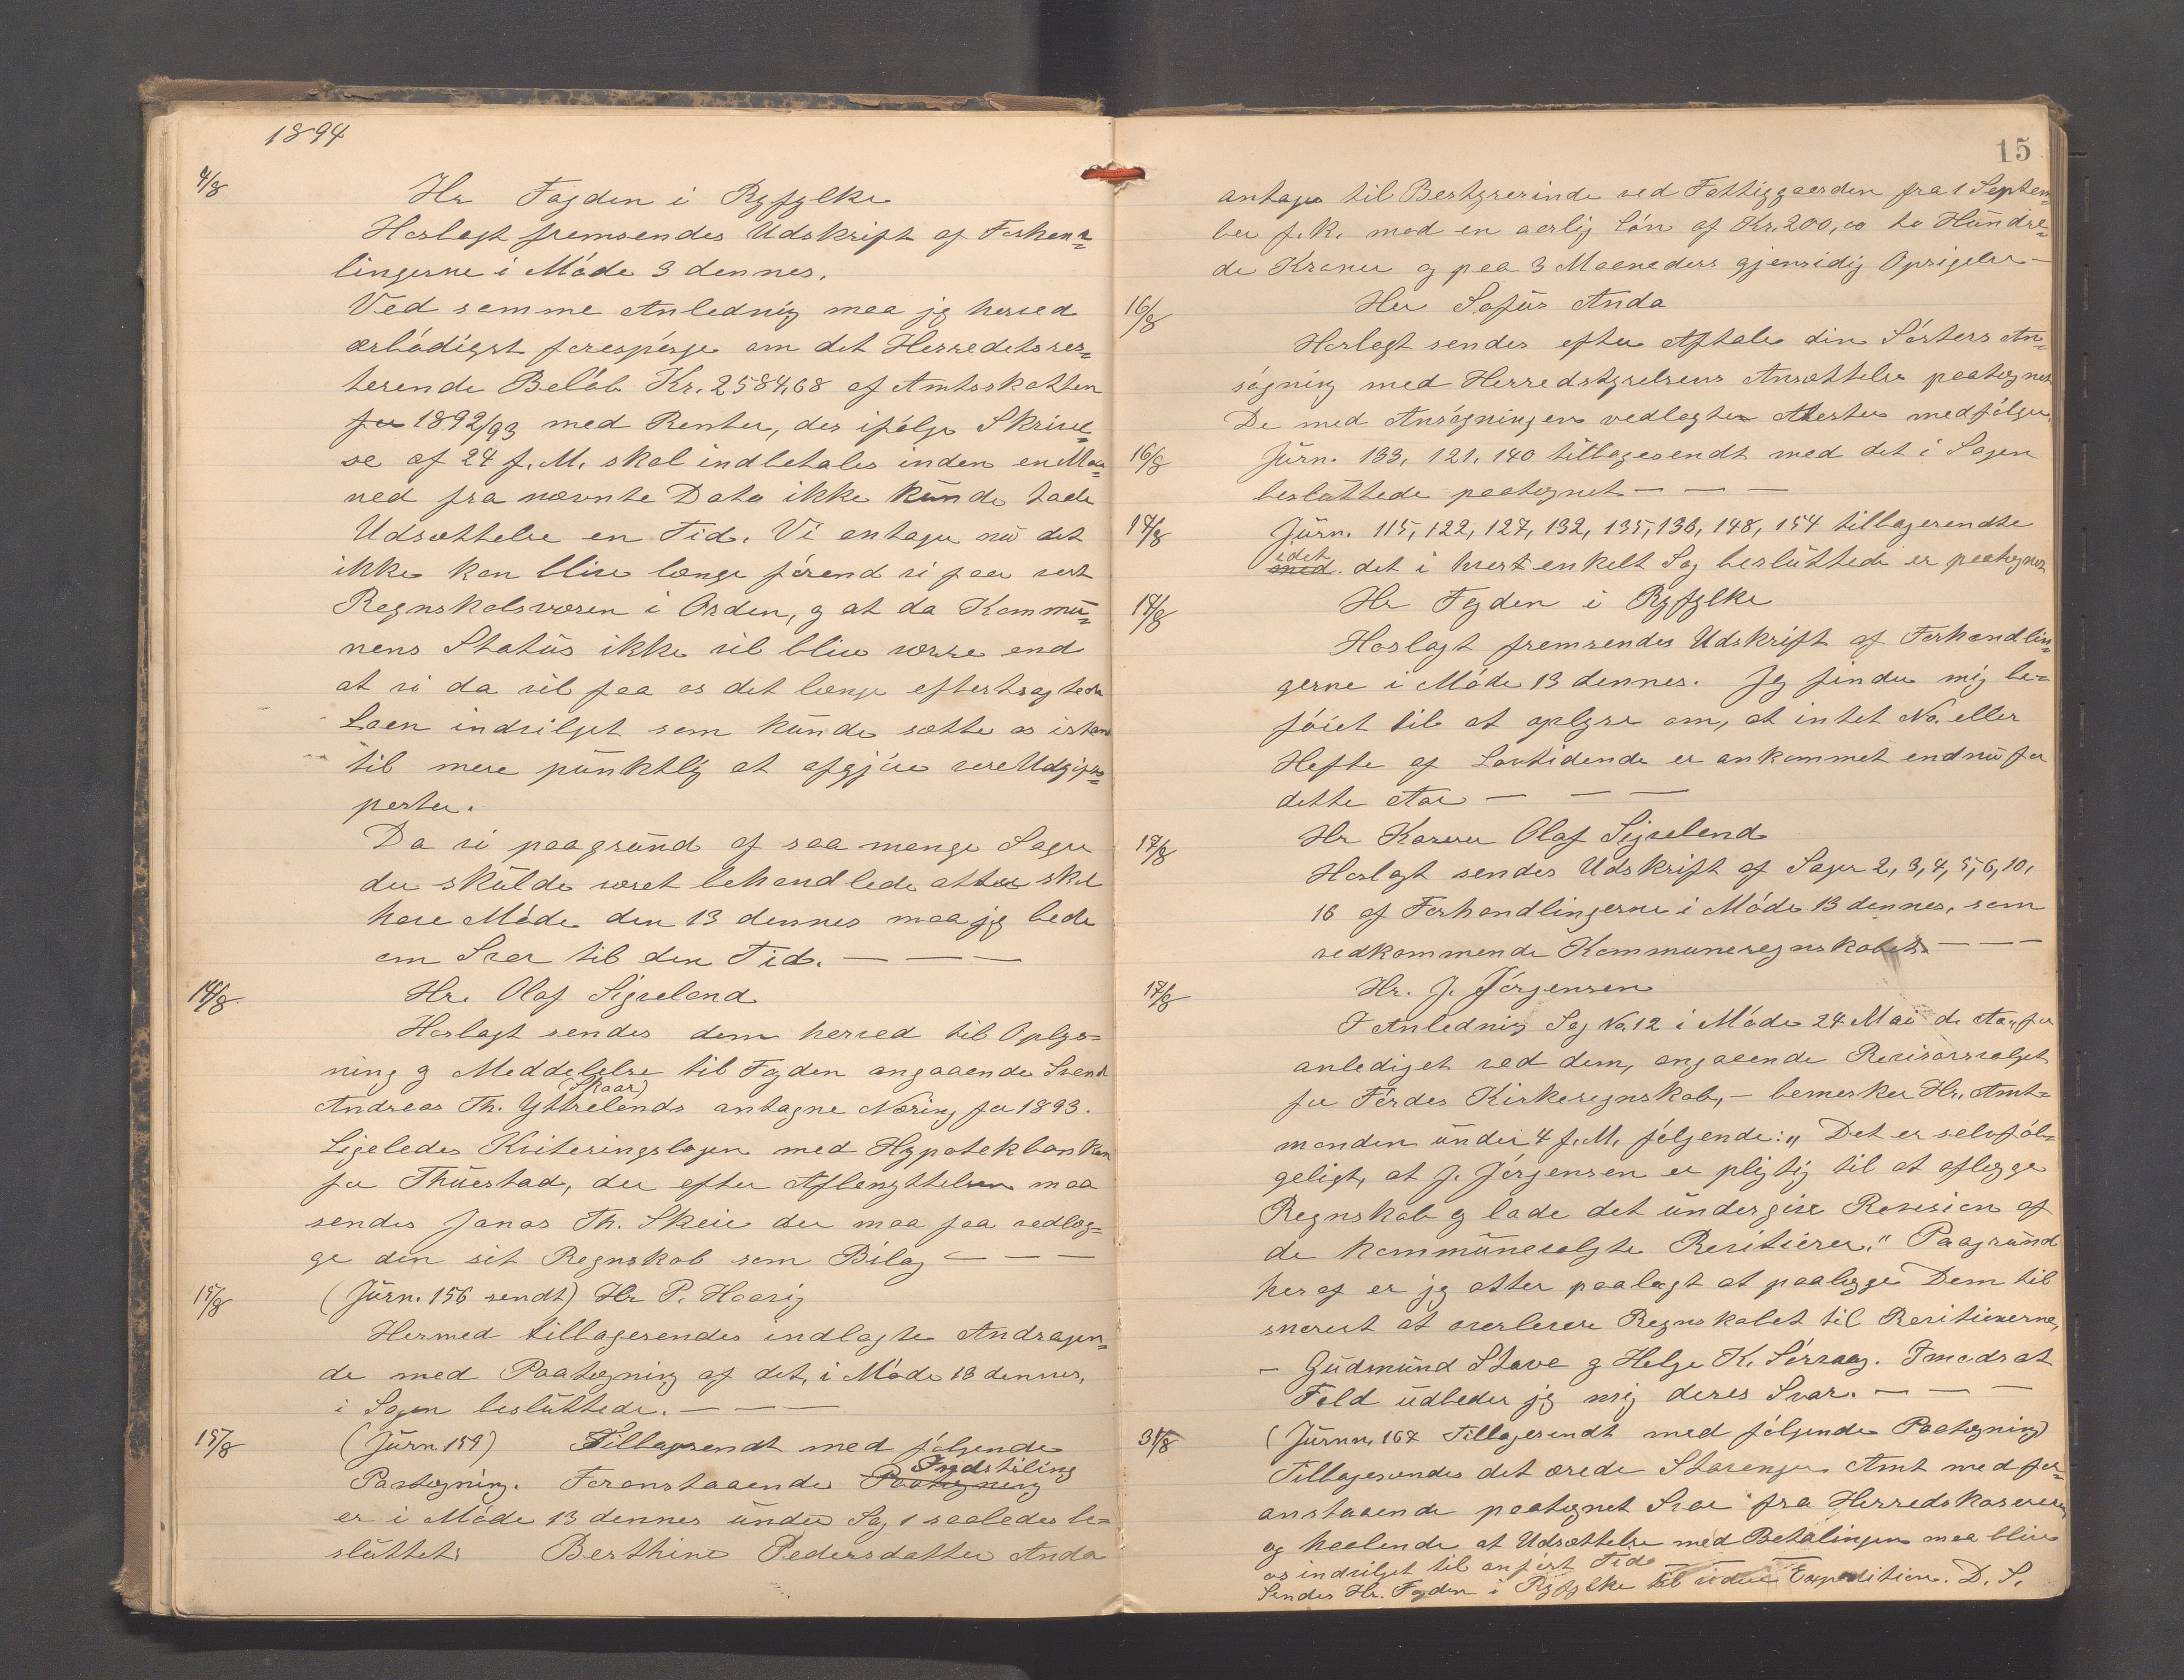 1894
4/8
Hr Fogden i Ryfylke
Hoslagt fremsendes Udskrift af Forhand=
lingerne i Møde 3 dennes.
Ved samme Anledning maa jeg herved
ærbødigst forespørge om det Herredets res=
terende Beløb Kr. 2584,68 af Amtsskatten
for 1892/93 med Renter, der ifølge Skrivel=
se af 24 f. M. skal indbetales inden en Maa=
ned fra nævnte Dato ikke kunde taale
Udsættelse en Tid. Vi antager nu det
ikke kan blive længe førend vi faar vort
Regnskabsvæsen i Orden, og at da Kommü=
nens Status ikke vil blive værre end
at vi da vil faa os det længe eftertragtede
Laan indvilget som kunde sætte os istand
til mere pünktlig at afgjøre vore Udgifts=
poster.
Da vi paagründ af saa mange Sager
der skülde været behandlede atter skal
have Møde den 13 dennes maa jeg bede
om Svar til den Tid. — — —
14/8
Hr. Olaf Sigveland
Hoslagt sendes dem herved til Oplys=
ning og Meddelelse til Fogden angaaende Svend
(Skaar)
Andreas Th. Yttrelands antagne Næring for 1893.
Ligeledes Kviteringsbogen med Hypotekbanken
for Thüestad, der efter Afbenyttelsen maa
sendes Jonas Th. Skeie der maa faa vedlæg=
ge den sit Regnskab som Bilag — — —
15/8
(Jürn. 156 sendt) Hr P. Haavig
Hermed tilbagesendes indlagte Andragen=
de med Paategning af det, i Møde 13 dennes,
i Sagen beslüttede. — — —
15/8
(Jürn 159) Tilbagesendt med følgende
Paategning. Foranstaaende Paategning Indstiling
er i Møde 13 dennes ünder Sag 1 saaledes be=
slüttet: Berthine Pedersdatter Anda
15
antages til Bestyrerinde ved Fattiggaarden fra 1 Septem=
ber f. k. mod en aarlig Løn af Kr. 200,00 to Hündre=
de Kroner og paa 3 Maaneders gjensidig Opsigelse —
16/8
Herr Sofüs Anda
Hoslagt sendes efter Aftale din Søsters An=
søgning med Herredstyrelsens Ansættelse paategnet
De med Ansøgningen vedlagte Atester medfølger.
16/8
Jürn. 133, 121, 140 tilbagesendt med det i Sagen
beslüttede paategnet — — —
17/8
Jürn. 115, 122, 127, 132, 135, 136, 148, 154 tilbagesendte
idet
med det i hvert enkelt Sag beslüttede er paategnet
18/8
Hr Fogden i Ryfylke
Hoslagt fremsendes Udskrift af Forhandlin=
gerne i Møde 13 dennes. Jeg finder mig be=
føiet til at oplyse om, at intet No. eller
Hefte af Lovtidende er ankommet endnü for
dette Aar — — —
17/8
Hr Kaserer Olaf Sigveland
Hoslagt sendes Udskrift af Sager 2, 3, 4, 5, 6, 10,
16 af Forhandlingerne i Møde 13 dennes, som
vedkommende Kommuneregnskabet. — — —
17/8
Hr. J. Jørgensen
I Anledning Sag No. 12 i Møde 24 Mai d. Aa. for
anlediget ved dem, angaaende Revisorsvalget
for Førdes Kirkeregnskab, — bemerker Hr. Amt=
manden ünder 4 f. M. følgende: „Det er selvføl=
geligt, at J. Jørgensen er pligtig til at aflægge
Regnskab og lade det ündergive Revision af
de kommünevalgte Revisorer." Paagrund
heraf er jeg atter paalagt at paalægge Dem til
snarest at overlevere Regnskabet til Revisorerne,
— Gudmünd Stave og Helge K. Sørraag. I modsat
Fald üdbeder jeg mig deres Svar. — — —
31/8
(Jürnn. 167 Tilbagesendt med følgende Paategning)
Tilbagesendes det ærede Stavanger Amt med for=
anstaaende paategnet Svar fra Herredskasereren
og haabende at Udsættelse med Betalingen maa blive
os indvilget til anført Tid — — —
Sendes Hr. Fogden i Ryfylke til videre Expedition. D. S.